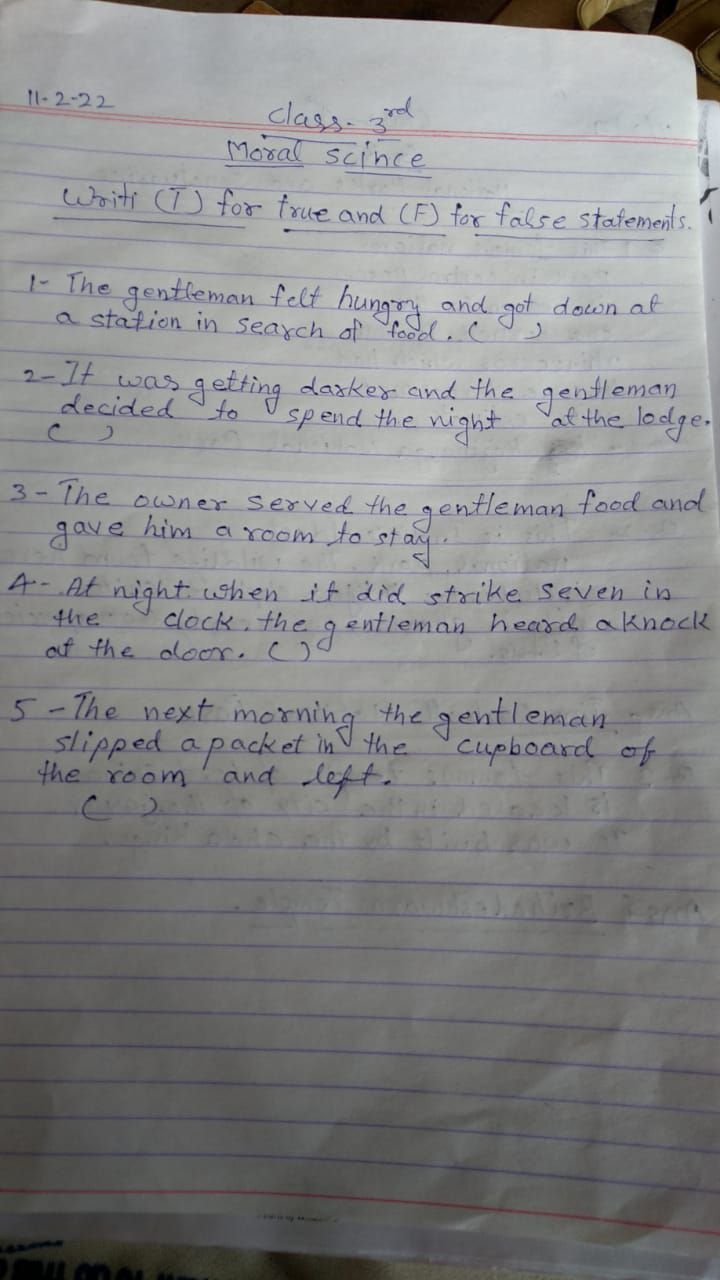 11-2-22
Class- 3rd
Moral scince
Writi (T) for true and (F) for false statements.
1- The gentleman felt hungry and got down at
a station in search of food. ( )
2- It was getting darker and the gentleman
decided to spend the night at the lodge.
( )
3- The owner served the gentleman food and
gave him a room to stay.
4- At night when it did strike seven in
the clock, the gentleman heard a knock
at the door. ( )
5- The next morning the gentleman
slipped a packet in the cupboard of
the room and left.
( )